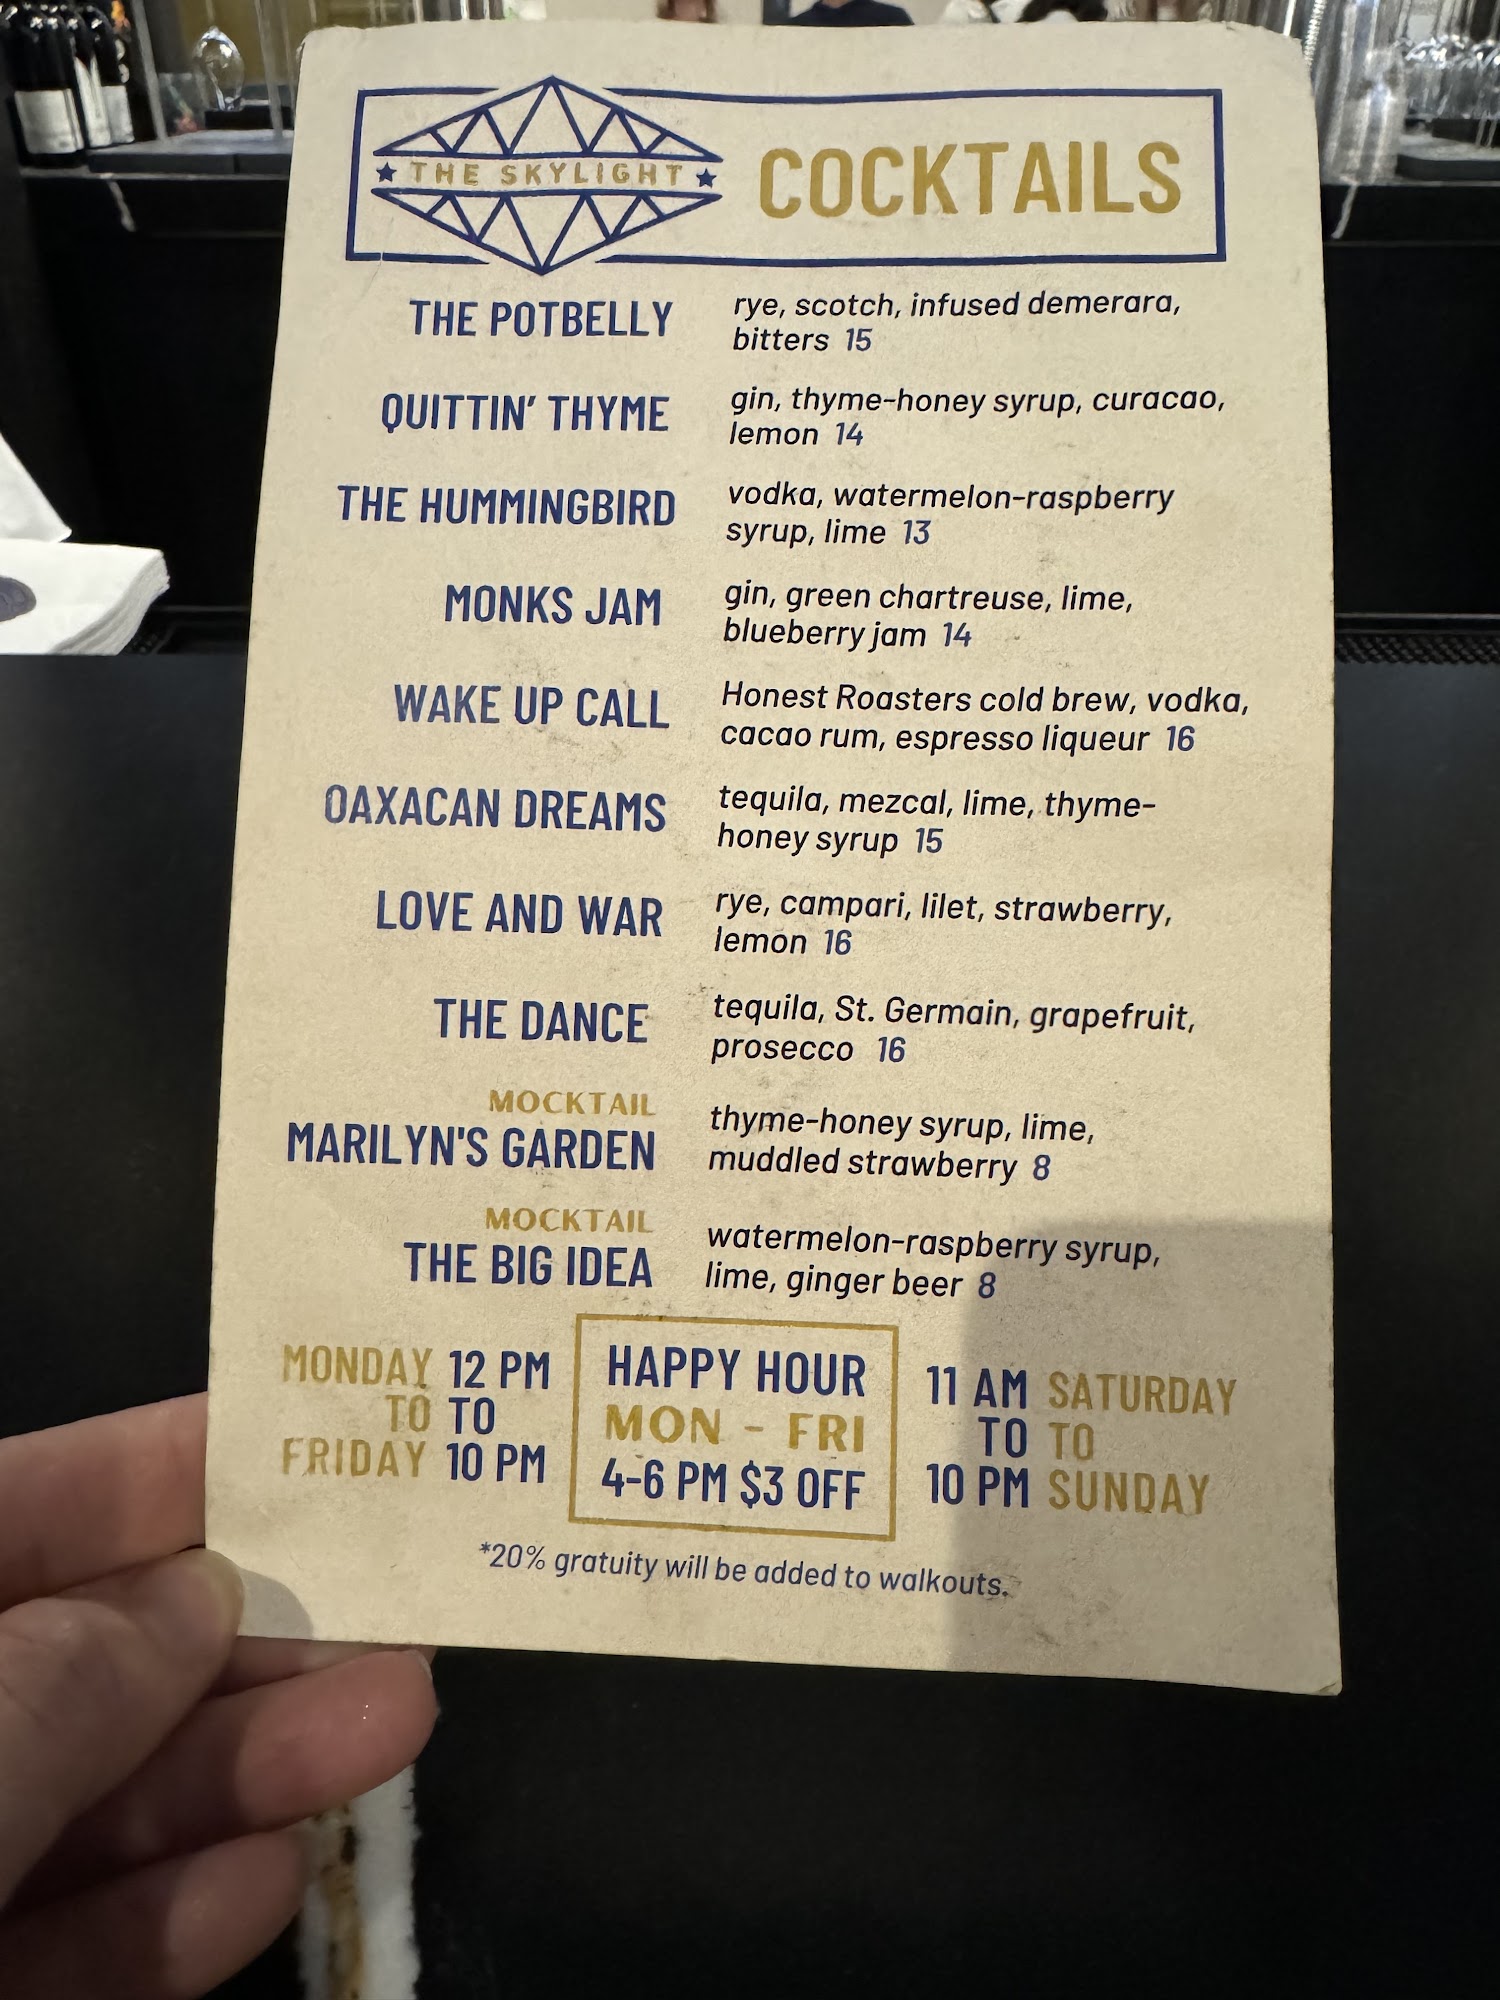 THE SKYLIGHT
COCKTAILS
THE POTBELLY
rye, scotch, infused demerara,
bitters 15
QUITTIN' THYME
gin, thyme-honey syrup, curacao,
lemon 14
THE HUMMINGBIRD
vodka, watermelon-raspberry
syrup, lime 13
MONKS JAM
gin, green chartreuse, lime,
blueberry jam 14
WAKE UP CALL
Honest Roasters cold brew, vodka,
cacao rum, espresso liqueur 16
OAXACAN DREAMS
tequila, mezcal, lime, thyme-
honey syrup 15
LOVE AND WAR
rye, campari, lilet, strawberry,
lemon 16
THE DANCE
tequila, St. Germain, grapefruit,
prosecco 16
MOCKTAIL
MARILYN'S GARDEN
thyme-honey syrup, lime,
muddled strawberry 8
MOCKTAIL
THE BIG IDEA
watermelon-raspberry syrup,
lime, ginger beer 8
MONDAY 12 PM
TO TO
FRIDAY 10 PM
HAPPY HOUR
MON - FRI
4-6 PM $3 OFF
11 AM SATURDAY
TO TO
10 PM SUNDAY
*20% gratuity will be added to walkouts.